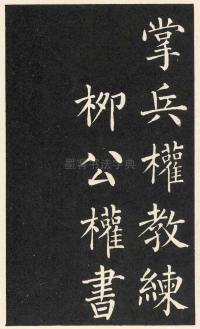 掌兵權教練
柳公權書
墨客书法字典